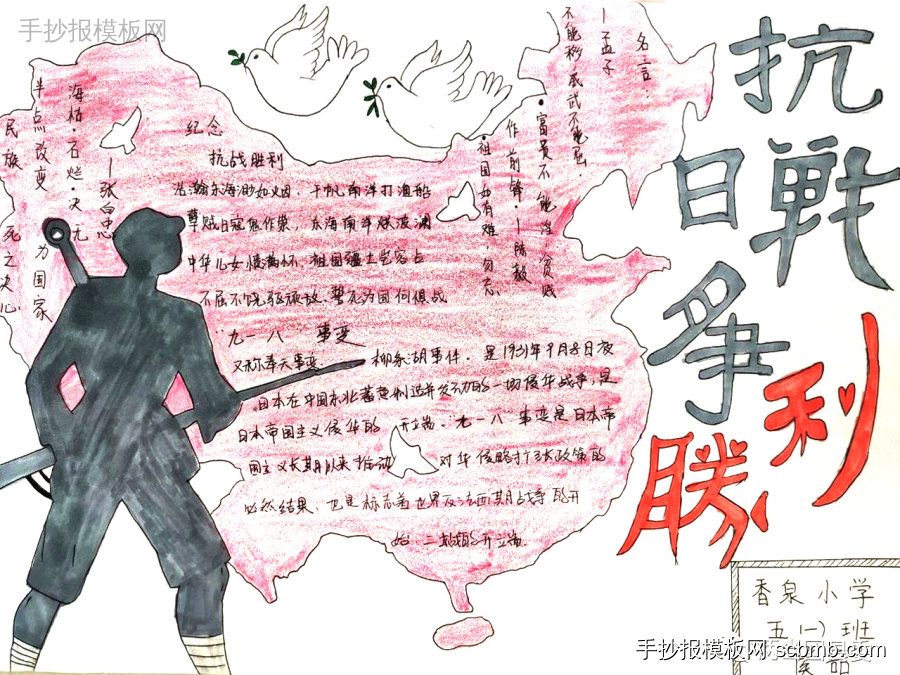 手抄报模板网
抗日戰争
勝利
名言：
—孟子
不能移威武不能屈.
富贵不能淫.贫贱
作前锋.—陈毅
祖国如有难，勿忘
海枯.石烂.决无
半点改变
民族
—张自忠
为国家
死之决心
纪念
抗战胜利
浩瀚东海渺如烟，千帆南洋打渔船
孽贼日寇
东海南洋
中华儿女愤满怀，祖国疆土岂容占
不屈不饶驱顽敌，誓死为国何惧战
"九一八"事变
又称奉天事变 柳条湖事件，是1931年9月8日夜
日本在中国东北蓄意制造并发动的一场侵华战争，是
日本帝国主义侵华的 开端."九一八"事变是日本帝
国主义长期以来推动 对华侵略扩张政策的
必然结果，也是标志着世界反法西斯战争的开
始 二战的开端.
香泉小学
五(一)班
手抄报模板网 scbmb.com